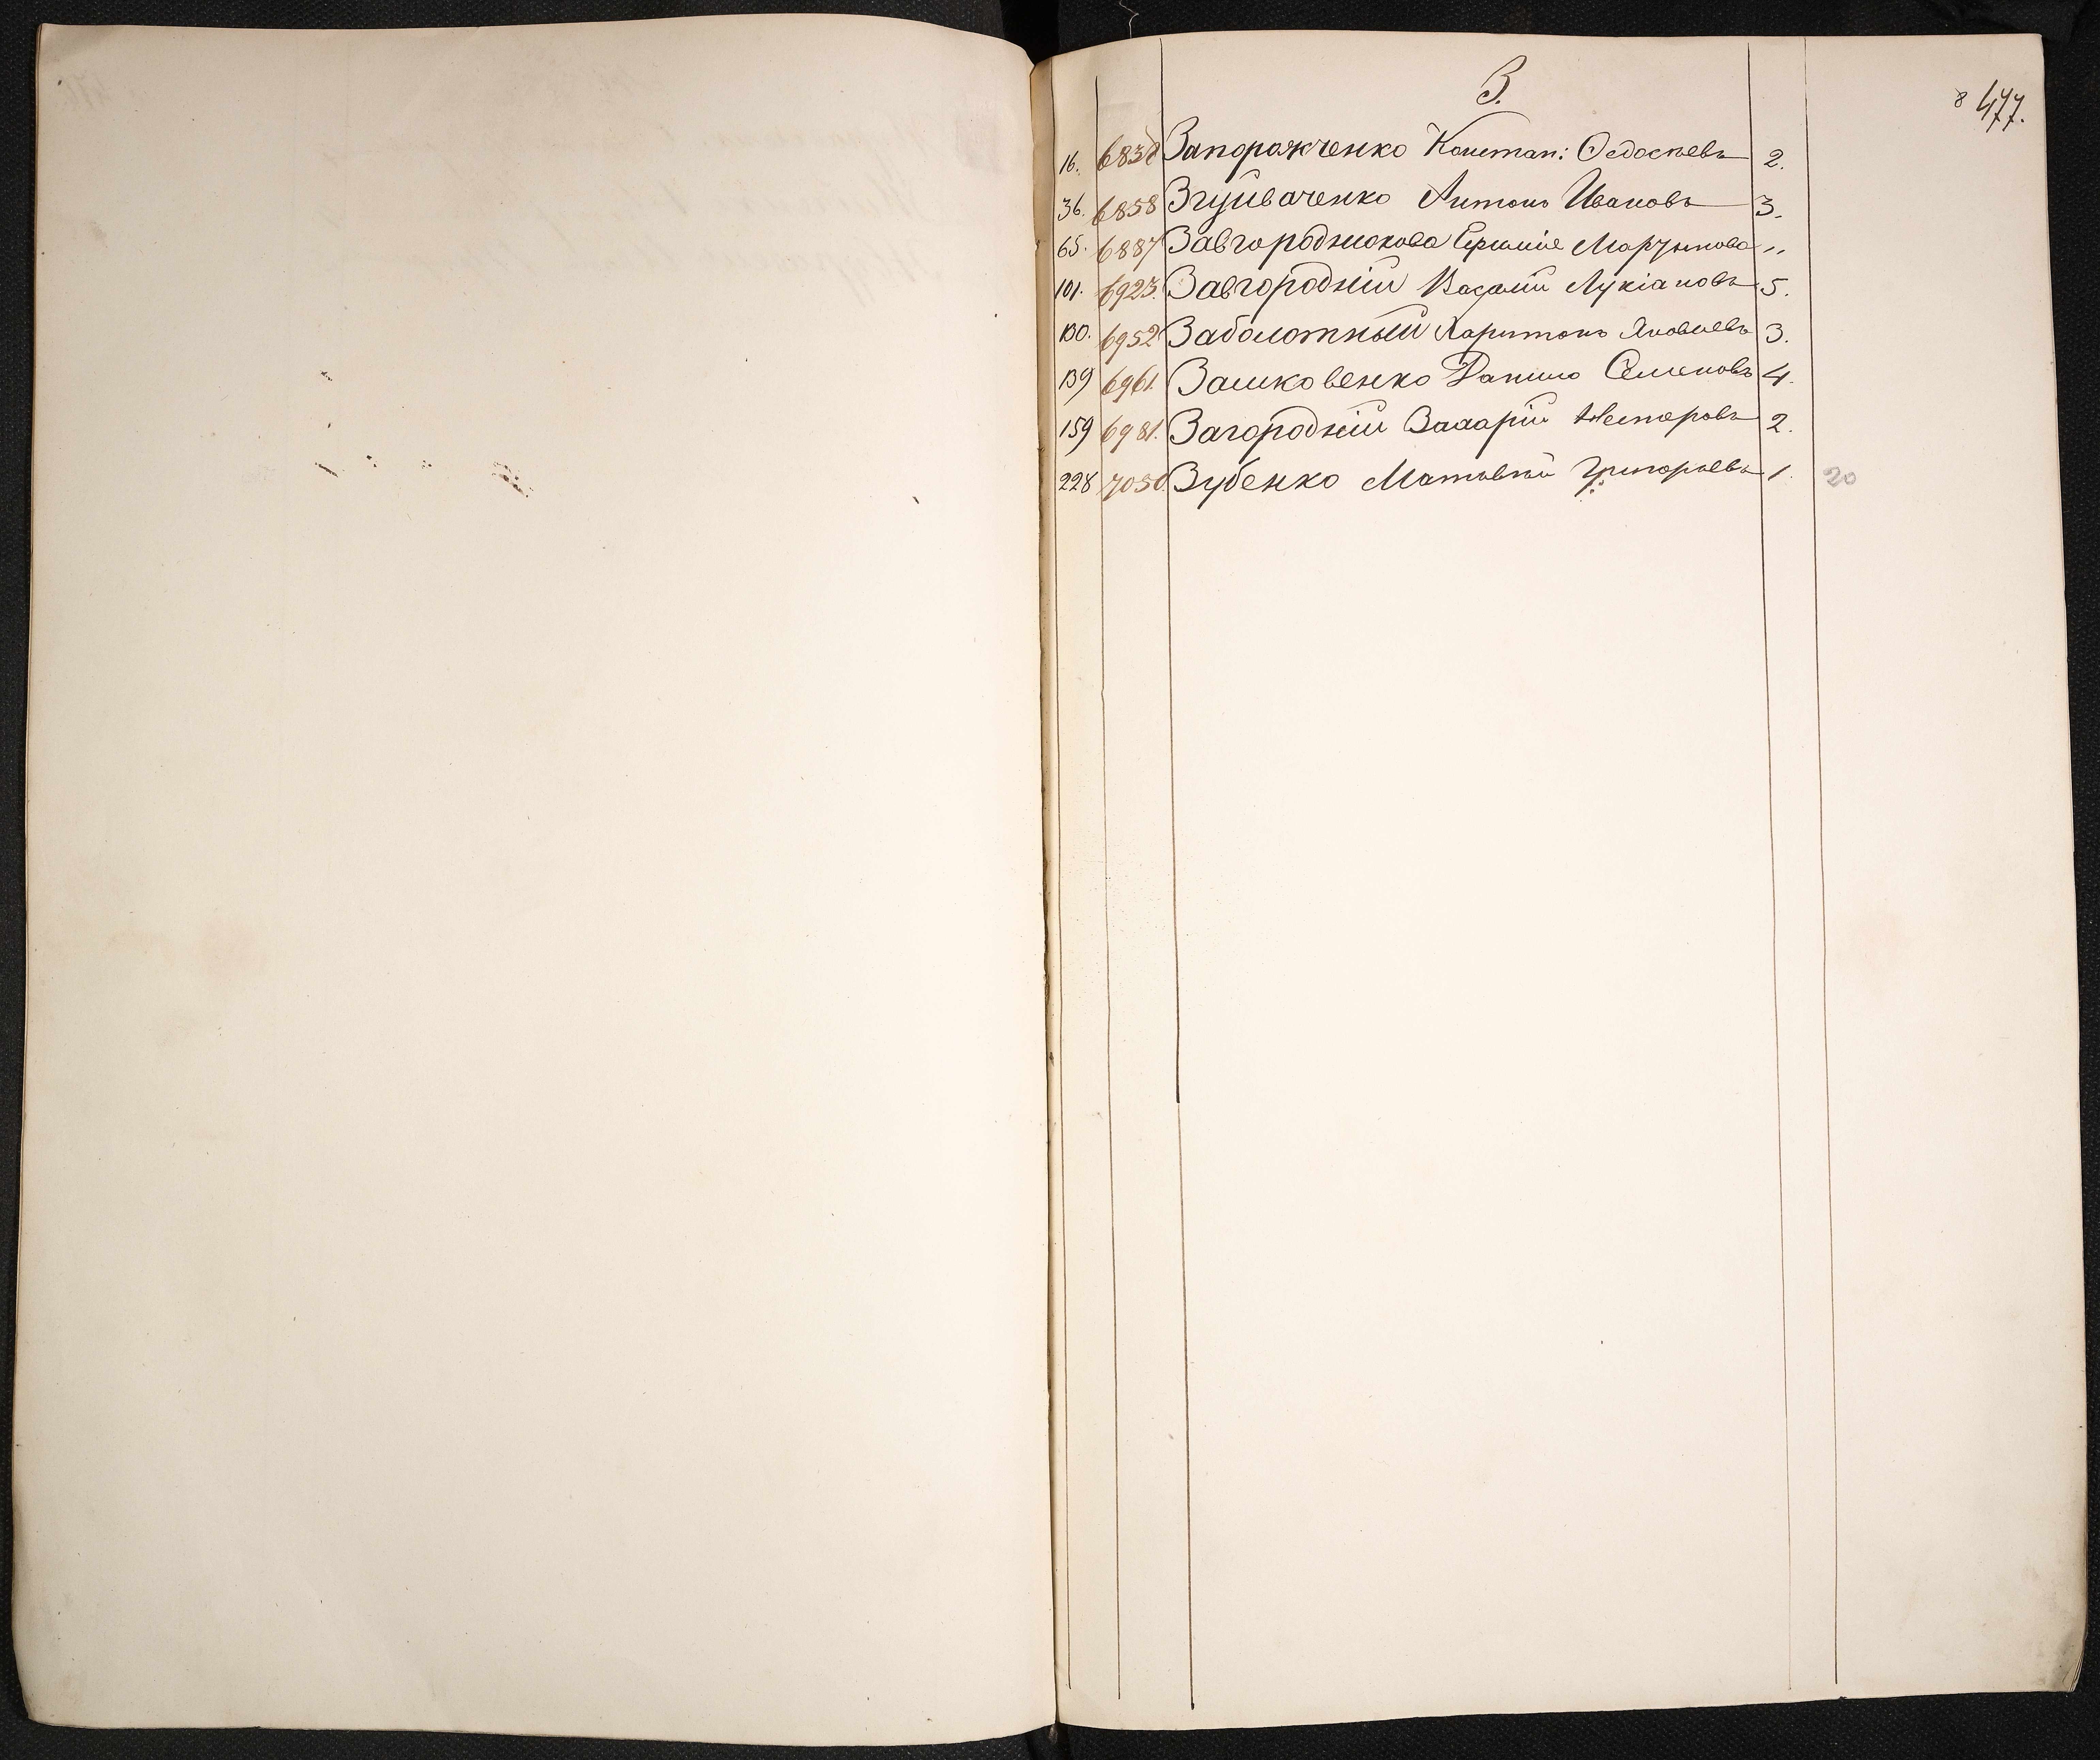 З.
477.
16. 6838 Запорожченко Констан: Ѳедосѣевъ 2.
36. 6858 Антонъ Ивановъ 3.
65. 6887 „
101. 6923. Завгородній Василій Лукіановъ 5.
130. 6952 Заболотный Харитонъ Яковлевъ 3.
139 6961. Зашковенко Данило Семеновъ 4.
159 6981. Загородній Захарій Несторовъ 2.
228 7050. Зубенко Матвѣй Григорьевъ 1. 20